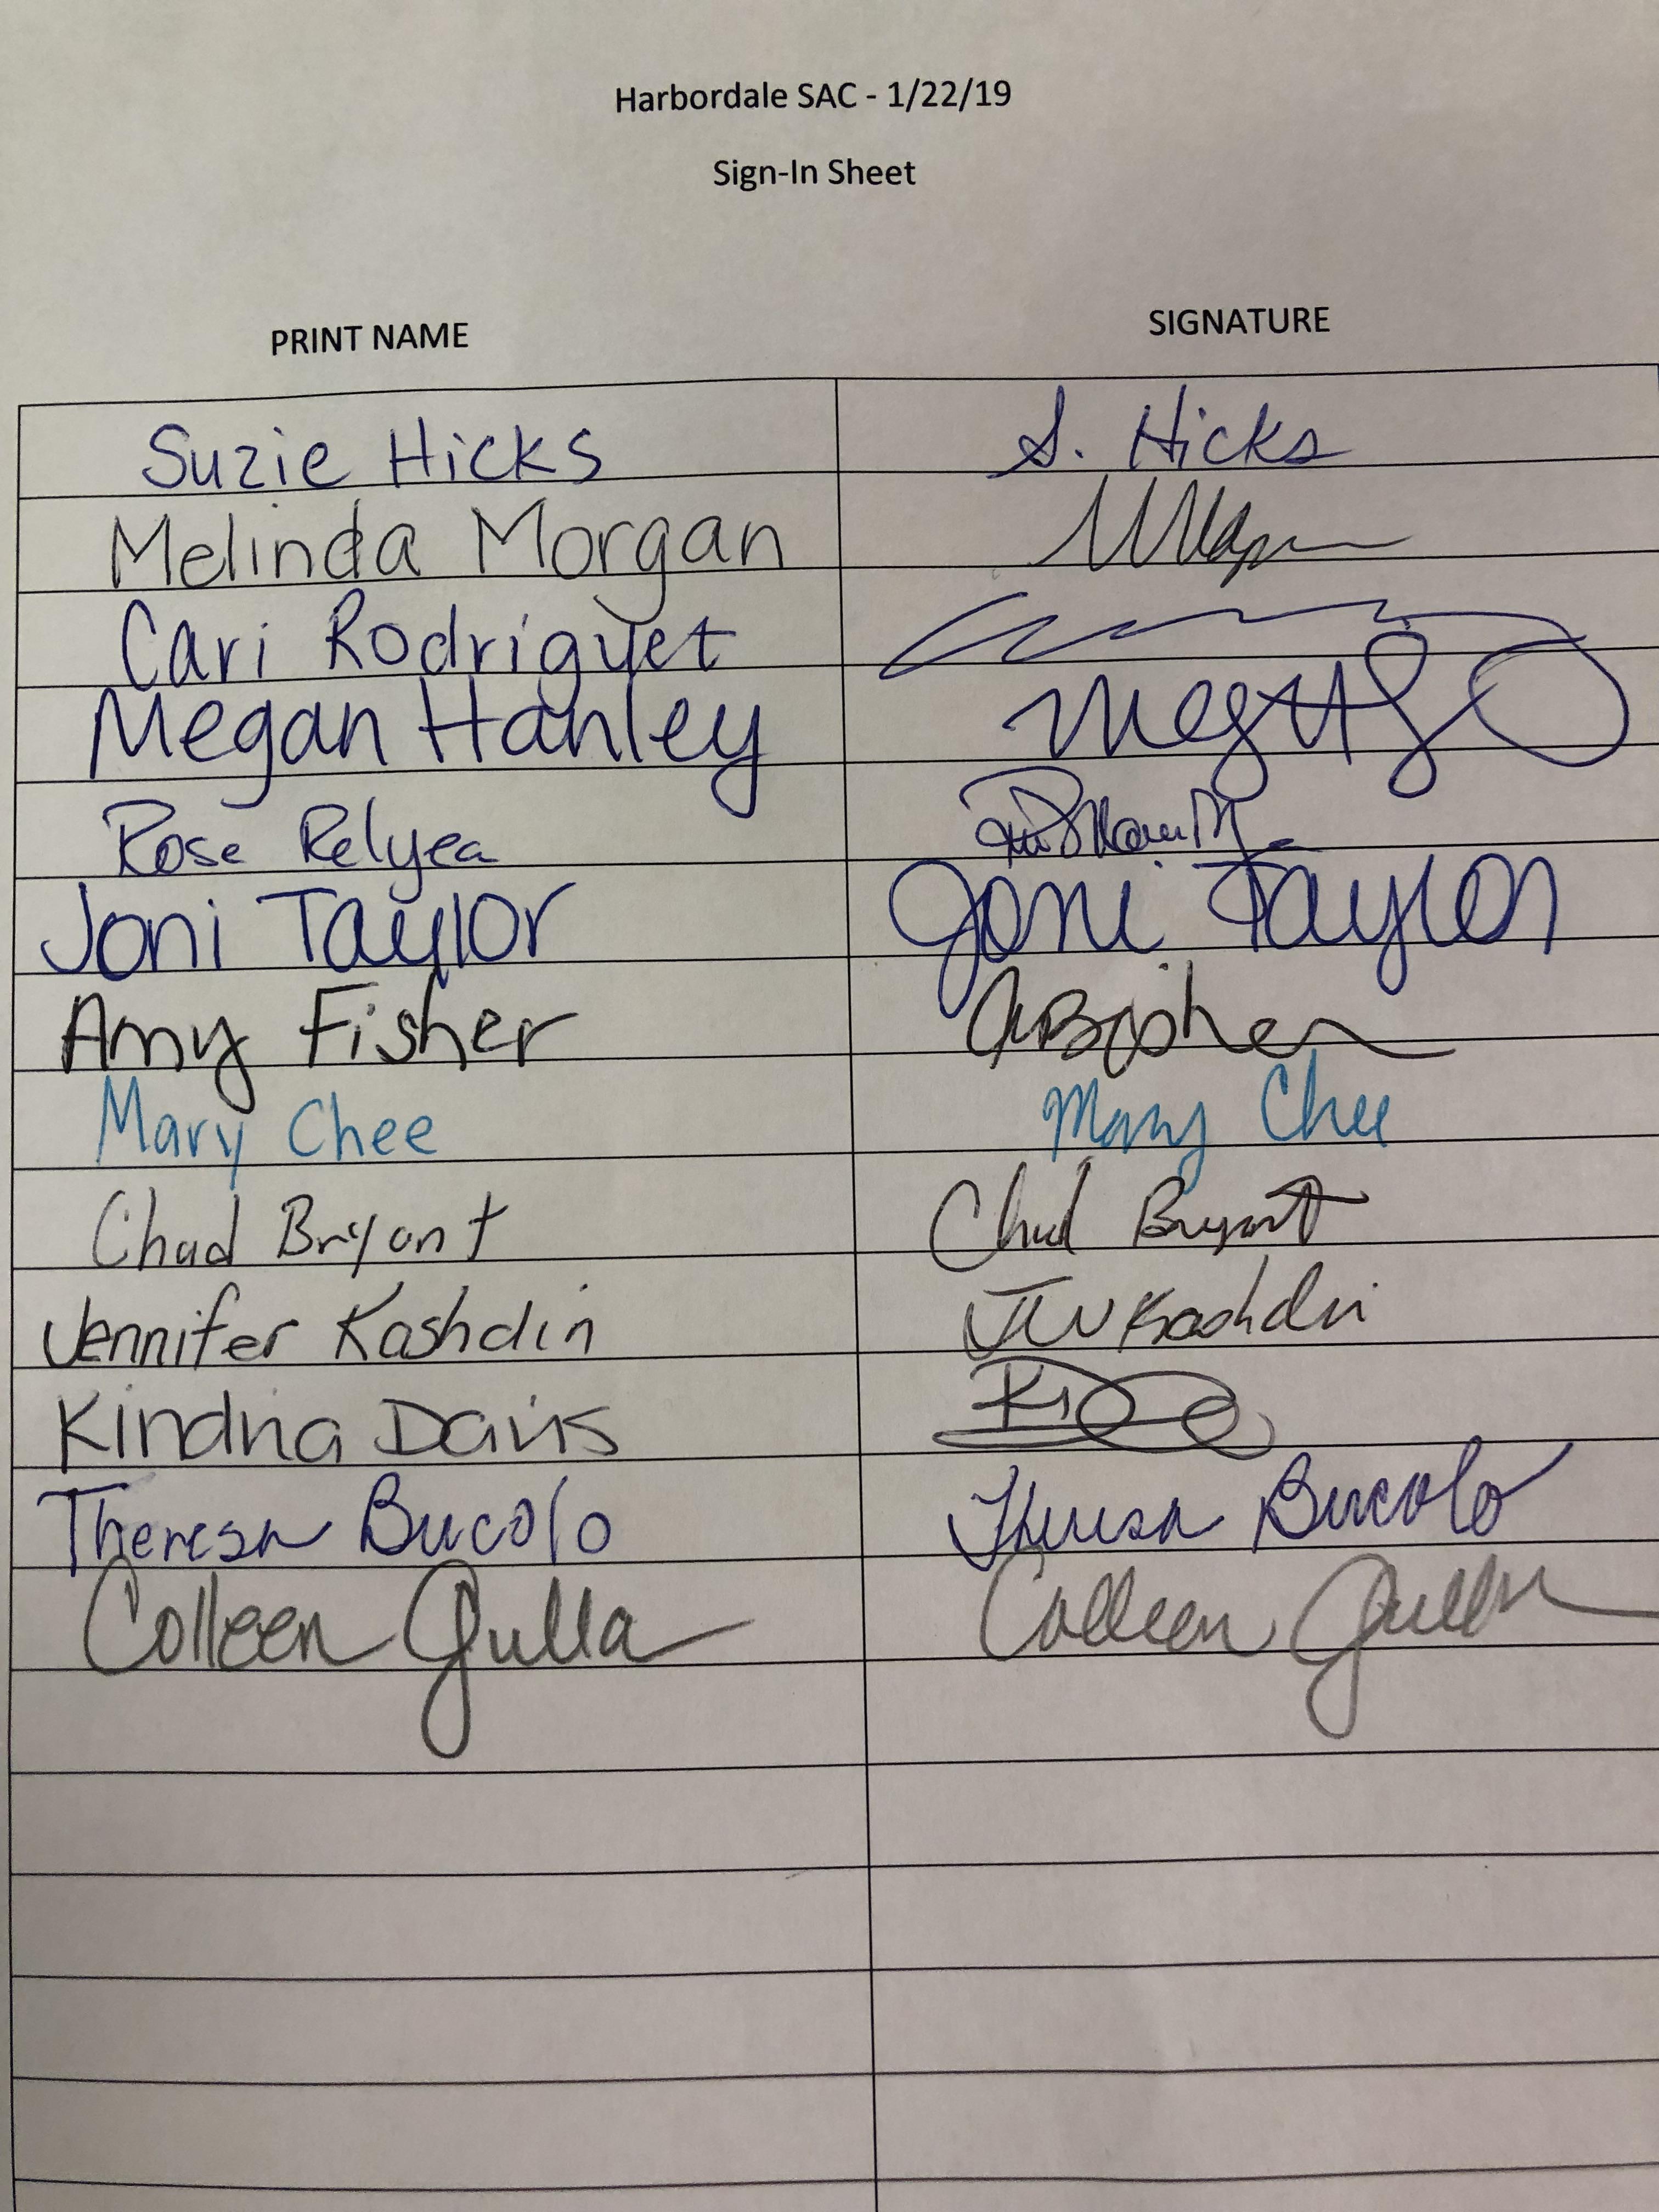 Harbordale SAC - 1/22/19
Sign-In Sheet
PRINT NAME SIGNATURE
Suzie Hicks S. Hicks
Melinda Morgan
Cari Rodriguet
Megan Hanley
Rose Relyea
Joni Taylor Joni Taylor
Amy Fisher
Mary Chee Mary Chee
Chad Bryant Chad Bryant
Jennifer Kashdin JW Kashdin
Kindria Davis
Theresa Bucolo Theresa Bucolo
Colleen Gulla Colleen Gulla